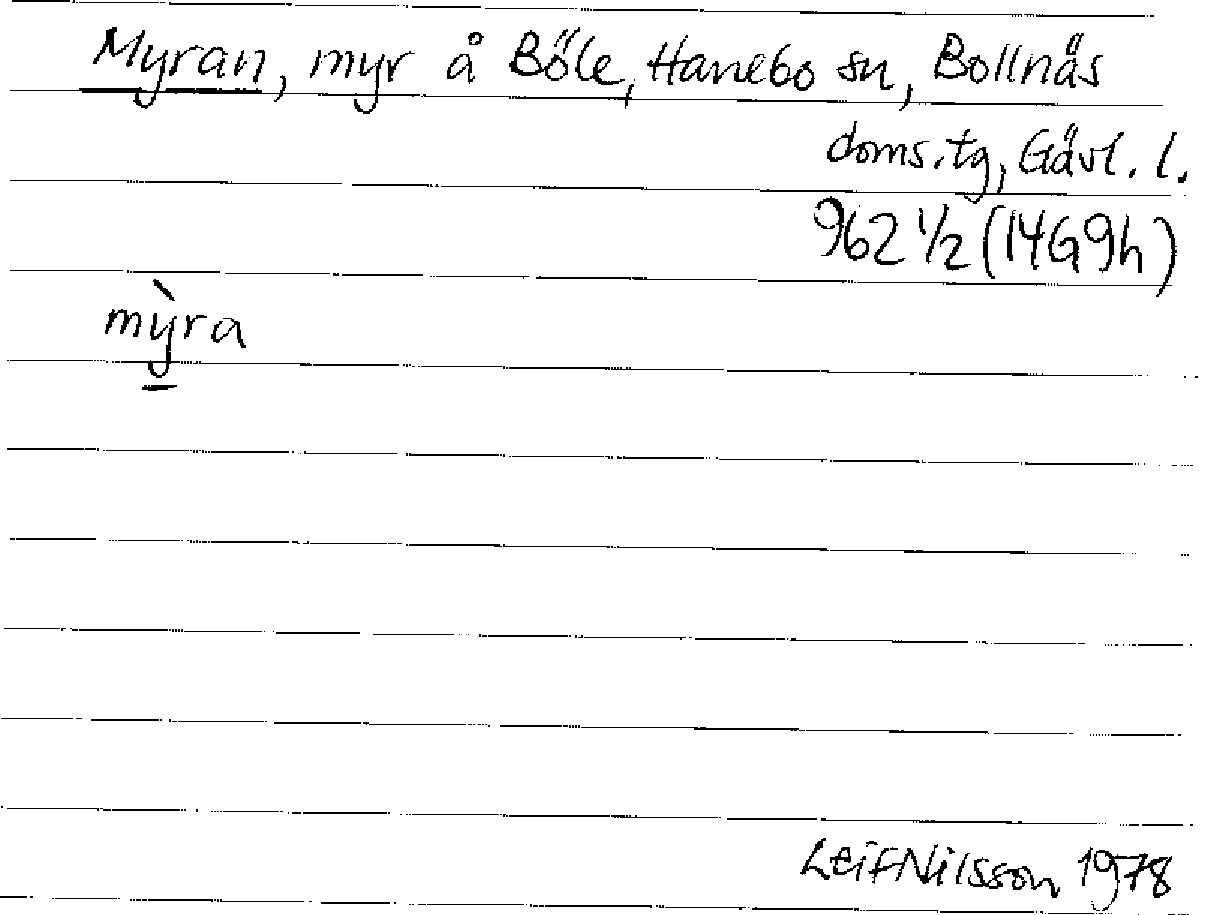 Myran, myr å Böle, Hanebo sn, Bollnäs
doms.tg, Gävl. l.
962 ½ (14G9h)
mỳra
Leif Nilsson 1978